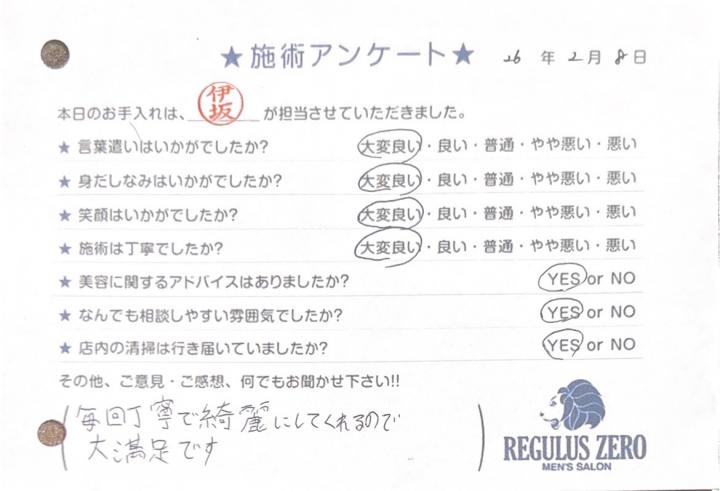 ★施術アンケート★
26年2月8日
本日のお手入れは、伊坂が担当させていただきました。
★ 言葉遣いはいかがでしたか? 大変良い・良い・普通・やや悪い・悪い
★ 身だしなみはいかがでしたか? 大変良い・良い・普通・やや悪い・悪い
★ 笑顔はいかがでしたか? 大変良い・良い・普通・やや悪い・悪い
★ 施術は丁寧でしたか? 大変良い・良い・普通・やや悪い・悪い
★ 美容に関するアドバイスはありましたか? YES or NO
★ なんでも相談しやすい雰囲気でしたか? YES or NO
★ 店内の清掃は行き届いていましたか? YES or NO
その他、ご意見・ご感想、何でもお聞かせ下さい!!
毎回丁寧で綺麗にしてくれるので
大満足です
REGULUS ZERO
MEN'S SALON